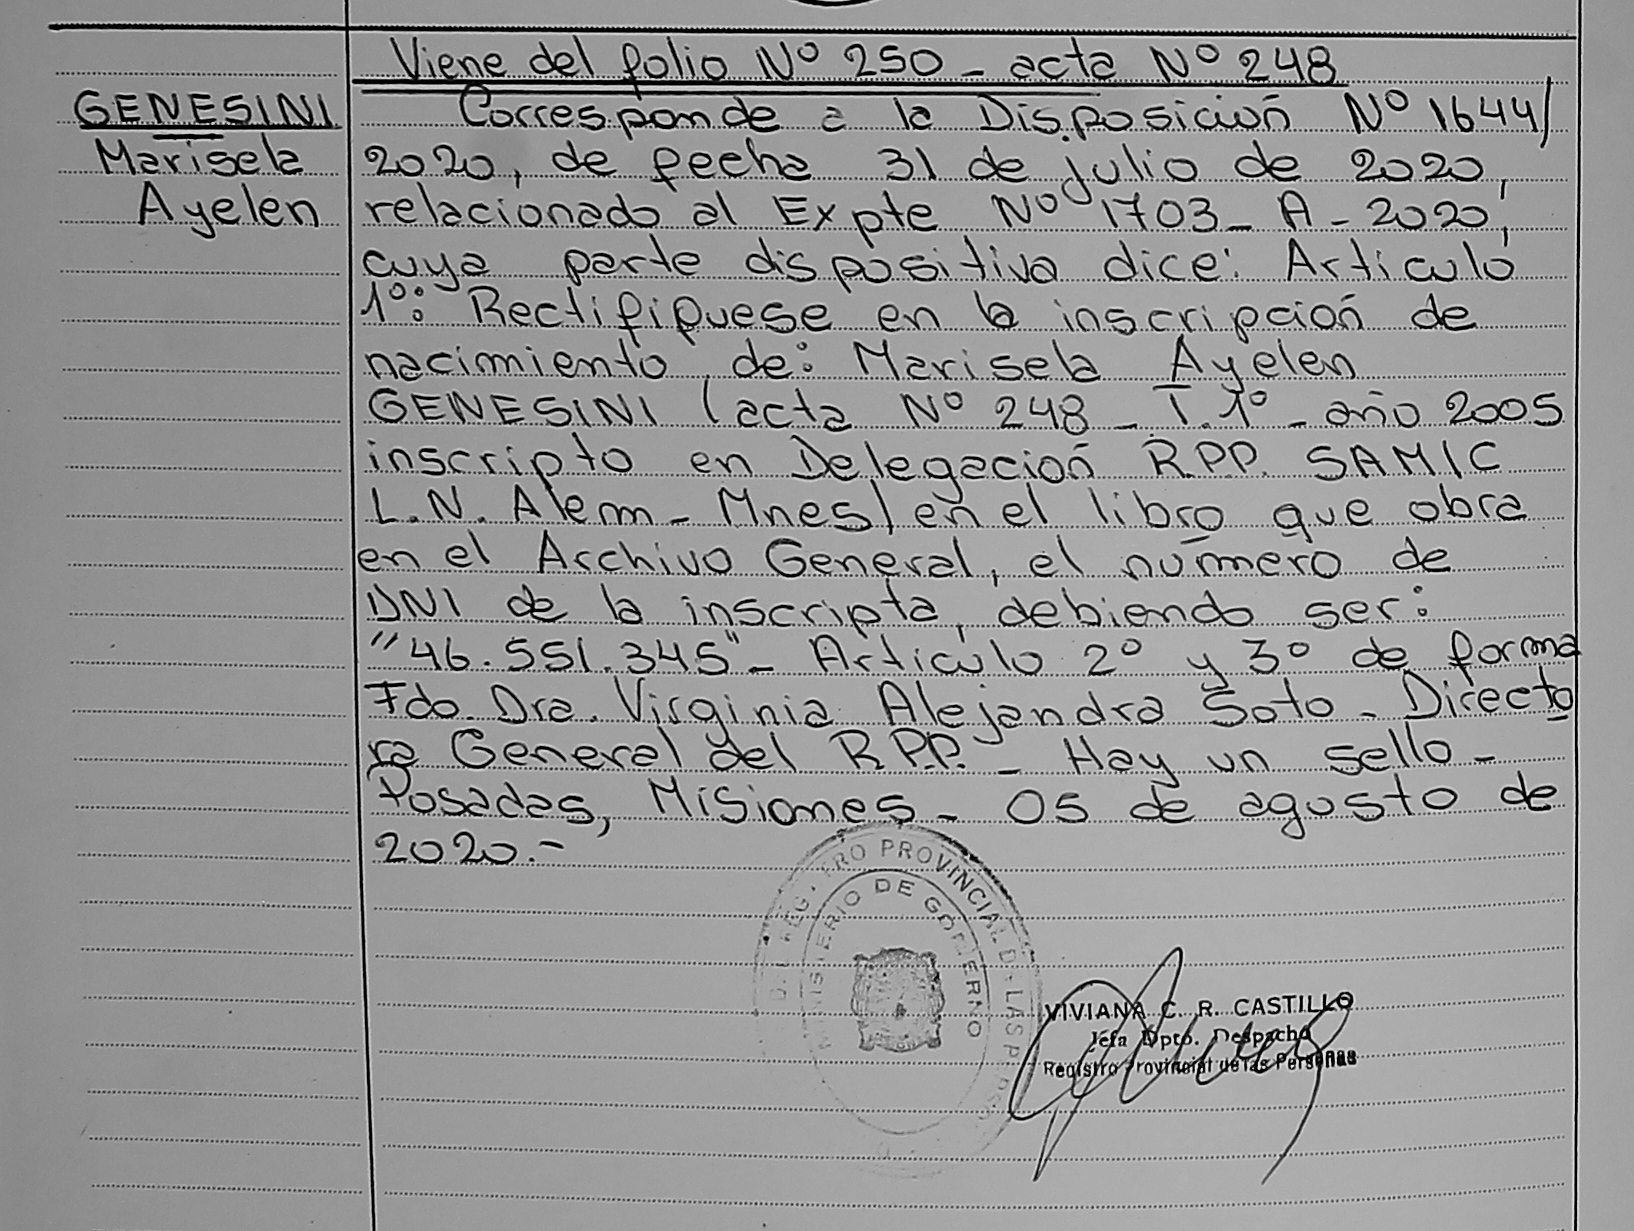 Viene del folio Nº 250 - acta Nº 248
GENESINI
Marisela
Ayelen
Corresponde a la Disposición Nº 1644/
2020, de fecha 31 de julio de 2020,
relacionado al Expte Nº 1703 - A - 2020,
cuya parte dispositiva dice: Articulo
1º: Rectifiquese en la inscripción de
nacimiento de: Marisela Ayelen
GENESINI (acta Nº 248 - T. 1º - año 2005
inscripto en Delegación R.P.P. SAMIC
L.N. Alem - Mnes) en el libro que obra
en el Archivo General, el número de
DNI de la inscripta, debiendo ser:
"46.551.345" - Articulo 2º y 3º de forma
Fdo. Dra. Virginia Alejandra Soto - Directo
ra General del R.P.P. - Hay un sello -
Posadas, Misiones - 05 de agosto de
2020.-
PROVINCIAL
MINISTERIO DE GOBIERNO
VIVIANA C. R. CASTILLO
Jefa Dpto. Despacho
Registro Provincial de las Personas